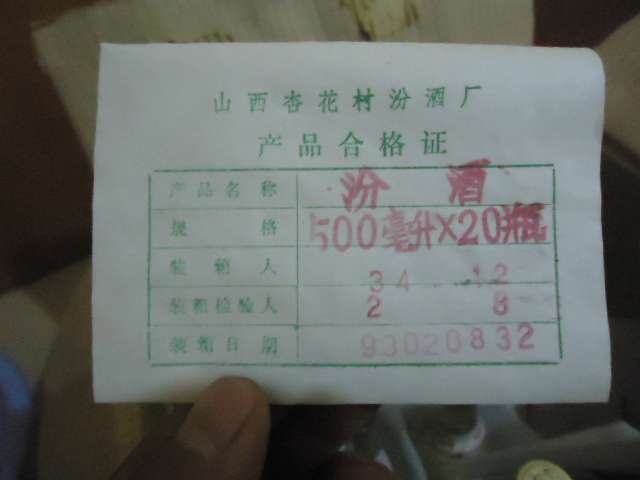 山西杏花村汾酒厂
产品合格证
产品名称 汾酒
规格 500毫升×20瓶
装箱人 34 12
装箱检验人 2 8
装箱日期 93020832